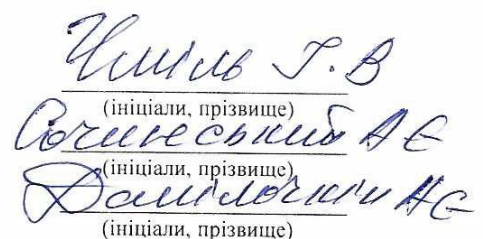 Чміль Г. В
(ініціали, прізвище)
Сочинський А Є
(ініціали, прізвище)
Данілочкін А Є
(ініціали, прізвище)